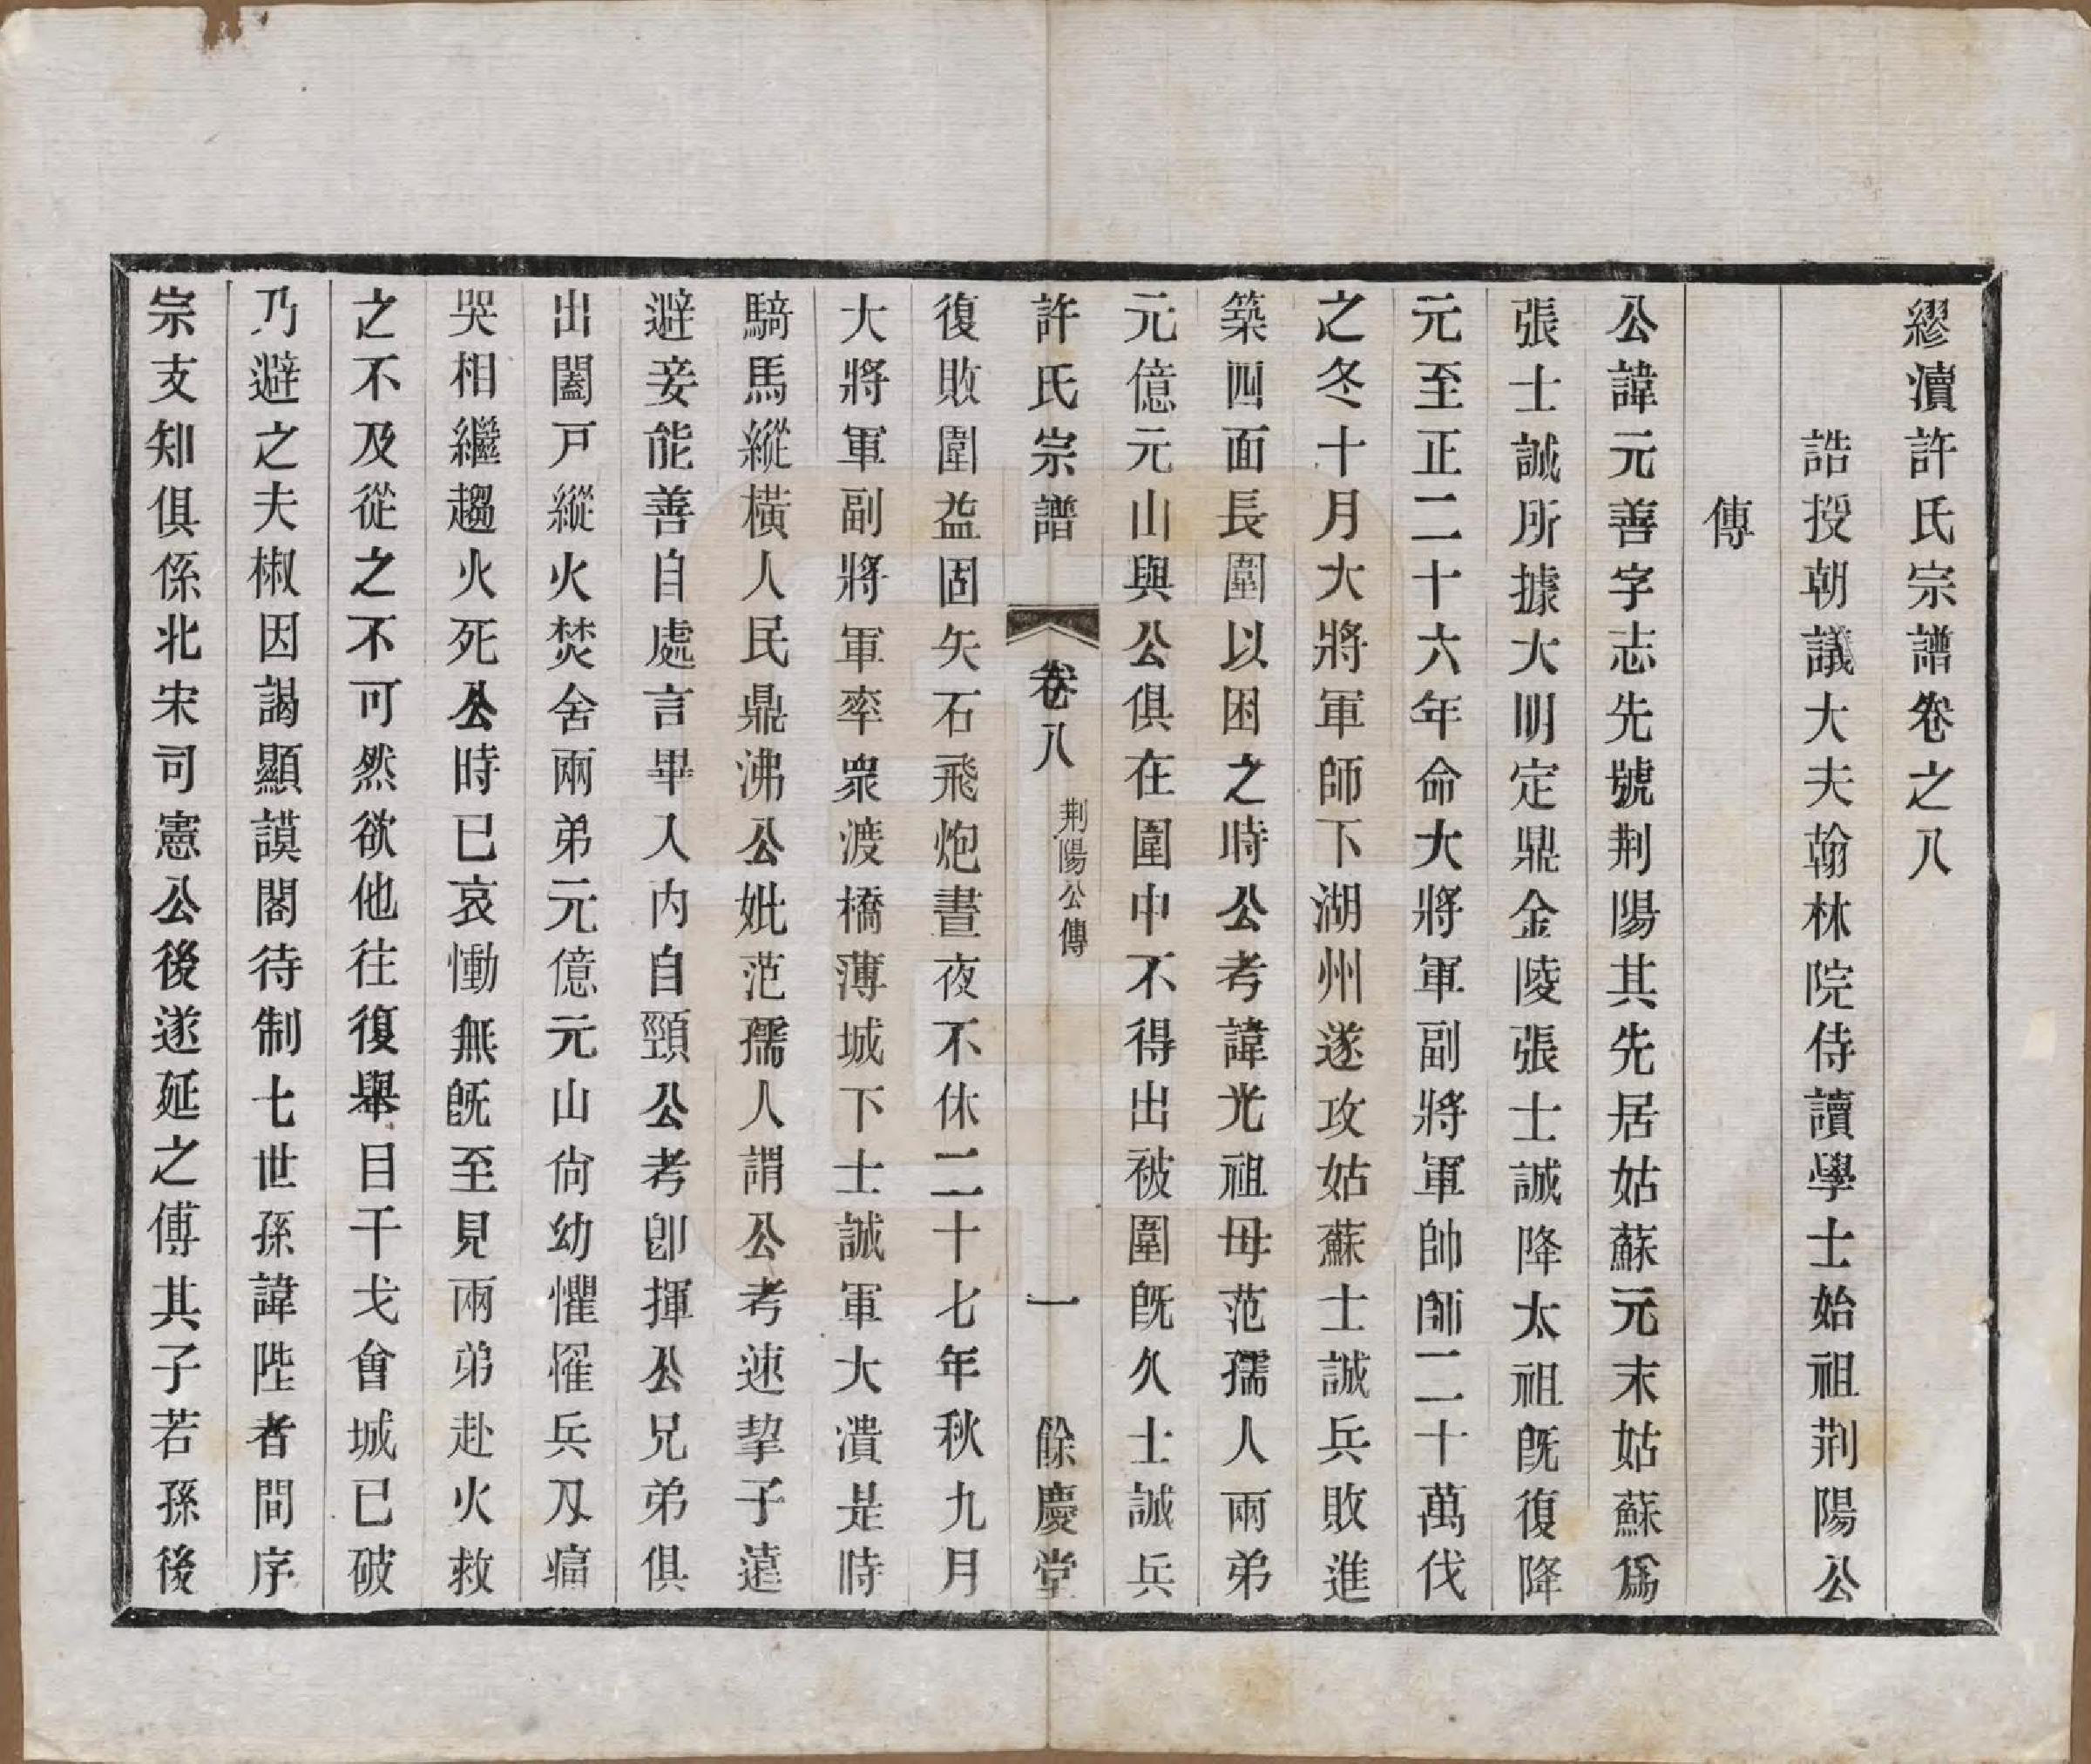 繆瀆許氏宗譜卷之八
誥授朝議大夫翰林院侍讀學士始祖荆陽公
傳
公諱元善字志先號荆陽其先居姑蘇元末姑蘇爲
張士誠所據大明定鼎金陵張士誠降太祖旣復降
元至正二十六年命大將軍副將軍帥師二十萬伐
之冬十月大將軍師下湖州遂攻姑蘇士誠兵敗進
築四面長圍以困之時公考諱光祖母范孺人兩弟
元億元山與公俱在圍中不得出被圍旣久士誠兵
許氏宗譜 卷八 荆陽公傳 一 餘慶堂
復敗圍益固矢石飛炮晝夜不休二十七年秋九月
大將軍副將軍率衆渡橋薄城下士誠軍大潰是時
騎馬縱橫人民鼎沸公妣范孺人謂公考速挈子遠
避妾能善自處言畢入內自頸公考卽揮公兄弟俱
出闔戸縱火焚舍兩弟元億元山尙幼懼罹兵刄痛
哭相繼趨火死公時已哀慟無旣至見兩弟赴火救
之不及從之不可然欲他往復舉目干戈會城已破
乃避之夫椒因謁顯謨閣待制七世孫諱陛者間序
宗支知俱係北宋司憲公後遂延之傅其子若孫後